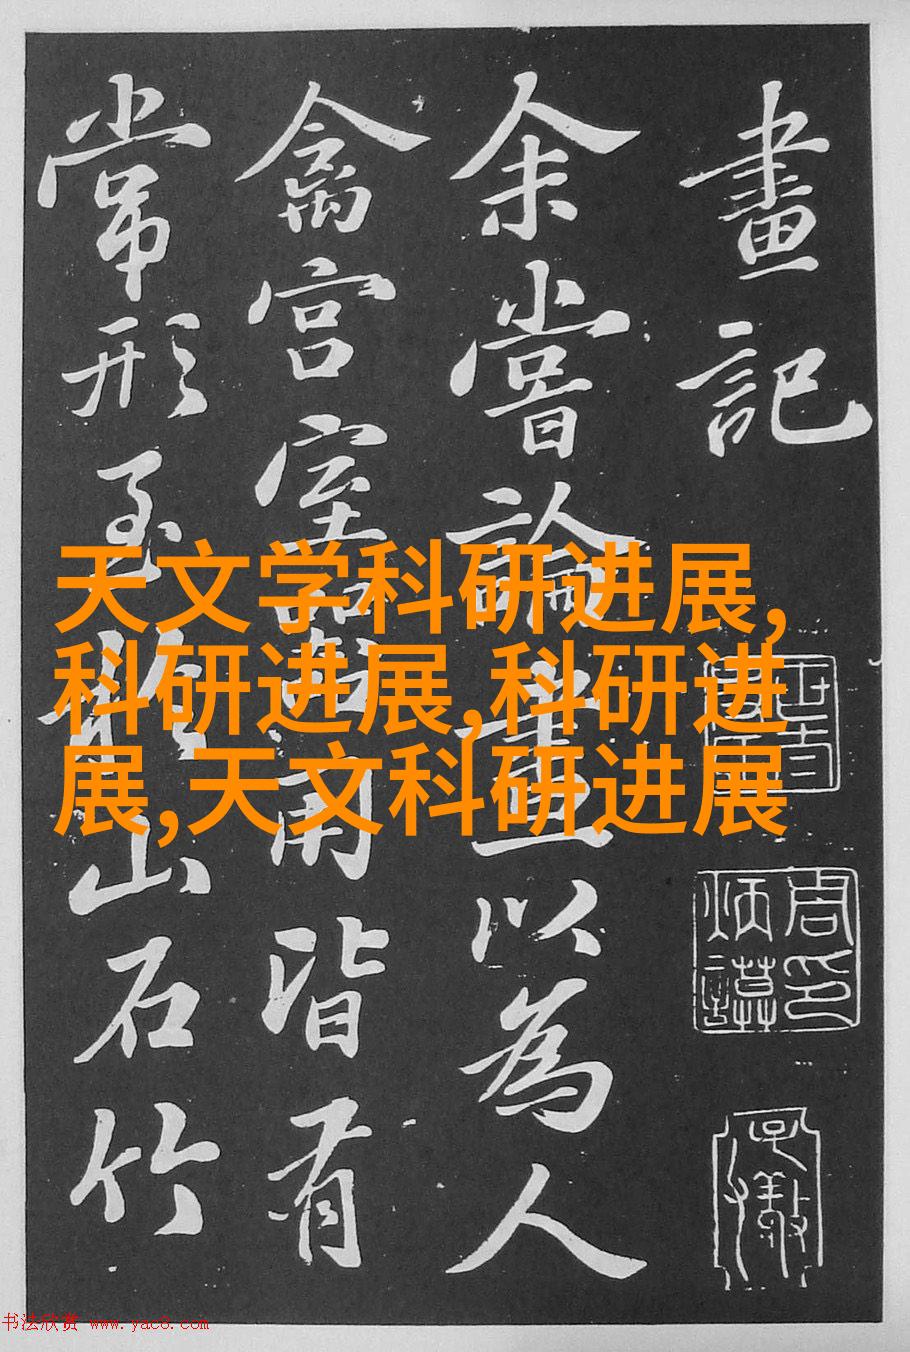 畫記
余嘗論畫以為人
禽宮室器用皆有
常形至於山石竹
天文学科研进展,
科研进展,科研进
展,天文科研进展
书法欣赏 www.yac8.com